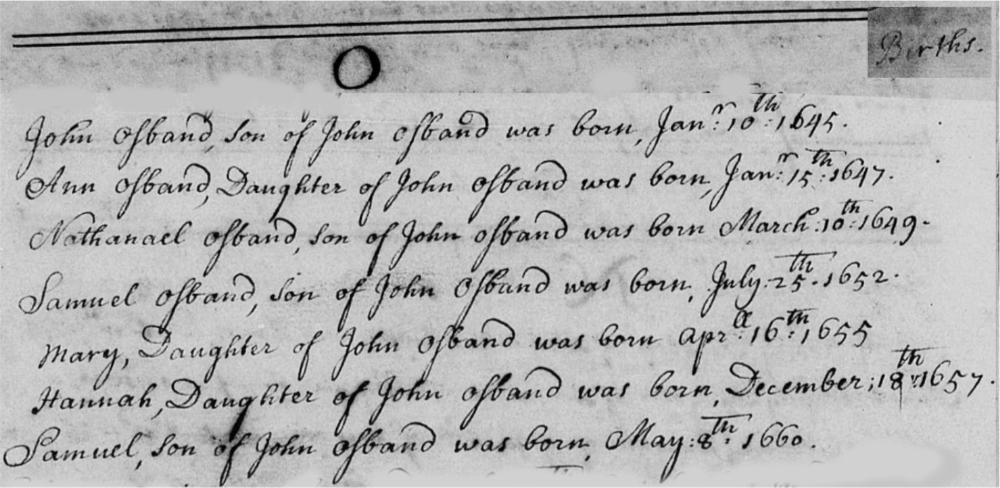 Births.
O
John Osband, son of John Osband was born, Janr. 10th: 1645.
Ann Osband, Daughter of John Osband was born, Janr. 15th: 1647.
Nathanael Osband, son of John Osband was born March: 10th: 1649.
Samuel Osband, son of John Osband was born, July: 25th. 1652.
Mary, Daughter of John Osband was born Aprll: 16th: 1655
Hannah, Daughter of John Osband was born, December: 18th: 1657.
Samuel, son of John Osband was born, May: 8th: 1660.